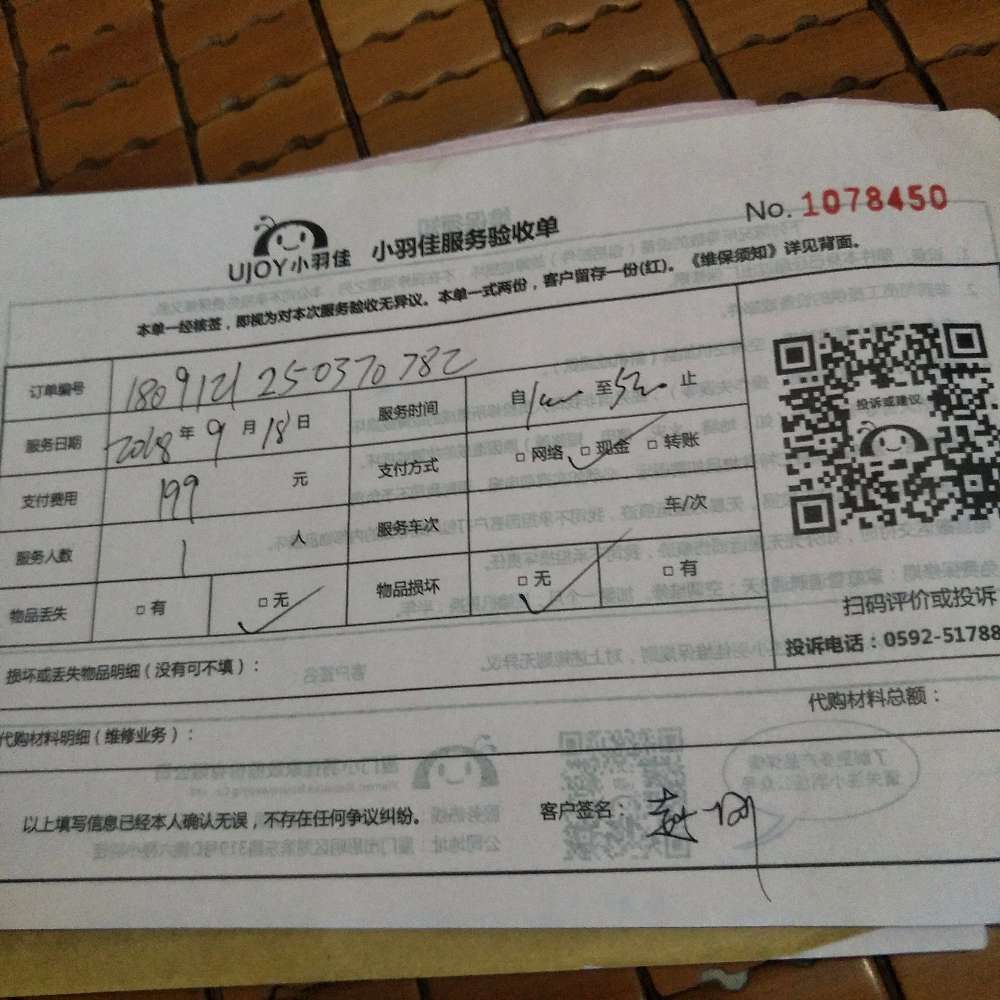 No. 1078450
UJOY小羽佳 小羽佳服务验收单
本单一经核签，即视为对本次服务验收无异议。本单一式两份，客户留存一份(红)。《维保须知》详见背面。
订单编号 1809121250370782 服务时间 自 至 止
服务日期 2018 年 9 月 18 日 支付方式 □ 网络 □ 现金 □ 转账
支付费用 199 元 服务车次 车/次
服务人数 1 人 物品损坏 □ 无 □ 有
物品丢失 □ 有 □ 无
投诉或建议
扫码评价或投诉
投诉电话：0592-51788
损坏或丢失物品明细（没有可不填）：
代购材料明细（维修业务）： 代购材料总额：
以上填写信息已经本人确认无误，不存在任何争议纠纷。 客户签名：